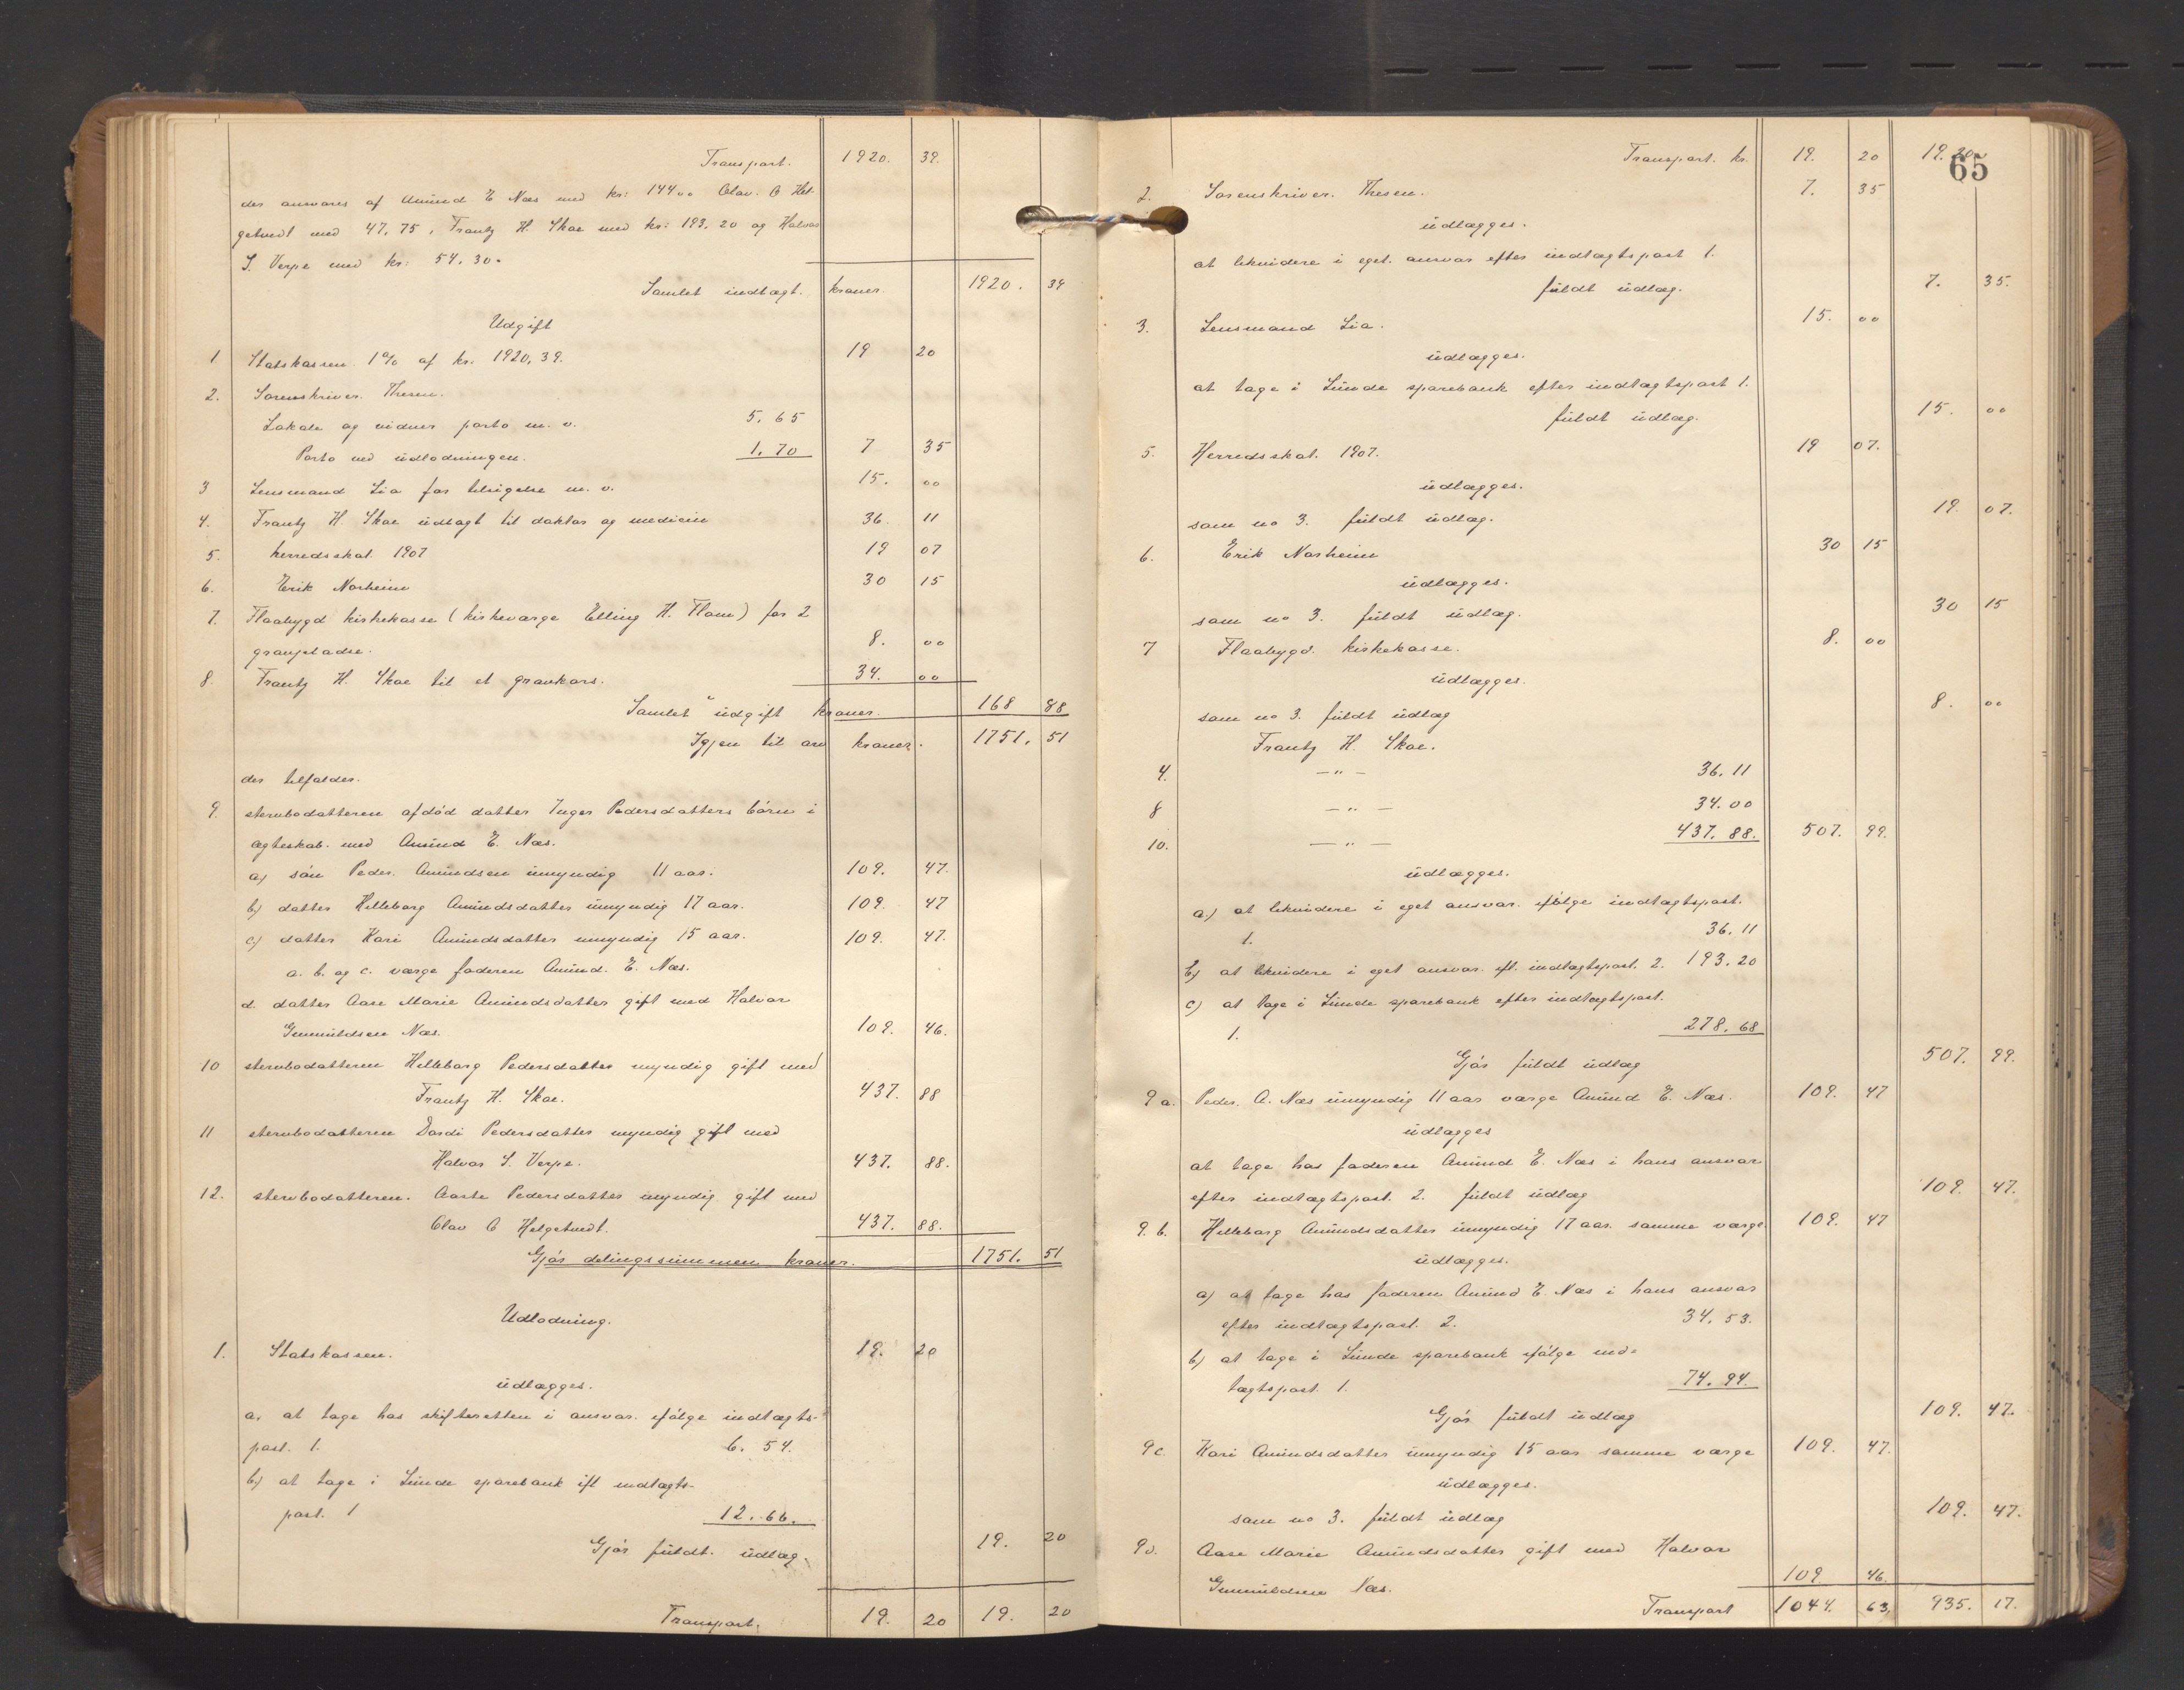 Transport. 1920. 39.
der ansvares af Amund E Næs med kr: 144,00 Olav. O Hel-
getvedt med 47,75, Frantz H. Skoe med kr: 193,20 og Halvor
S. Verpe med kr: 54,30.
Samlet indtægt. kroner. 1920. 39
Udgift
1 Statskassen. 1% af kr. 1920,39. 19 20
2. Sorenskriver. Thesen.
Lokale og vidner porto m. v. 5,65
Porto ved udlodningen. 1,70 7 35
3 Lensmand Lia for tilsigelse m. v. 15. 00
4. Frantz H. Skoe udlagt til doktor og medicin 36. 11
5. herredsskat 1907 19 07
6. Erik Norheim 30 15
7. Flaabygd kirkekasse (kirkeværge Elling H. Flom) for 2
gravpladse. 8. 00
8. Frantz H. Skoe til et gravkors. 34. 00
Samlet udgift kroner. 168 88
Igjen til arv kroner. 1751. 51
der tilfalder.
9. stervbodatteren afdød datter Inger Pedersdatters børn i
ægteskab. med Amund E. Næs.
a) søn Peder. Amundsen umyndig 11 aar. 109. 47.
b) datter Helleborg Amundsdatter umyndig 17 aar. 109. 47
c) datter Kari Amundsdatter umyndig 15 aar. 109. 47.
a. b. og c. værge faderen Amund. E. Næs.
d. datter Aase Marie Amundsdatter gift med Halvor
Gunnuldsen Næs. 109. 46.
10 stervbodatteren Helleborg Pedersdatter myndig gift med
Frantz H. Skoe. 437. 88
11 stervbodatteren Dordi Pedersdatter myndig gift med
Halvor S. Verpe. 437. 88.
12. stervbodatteren. Aaste Pedersdatter myndig gift med
Olav O Helgetvedt. 437. 88.
Gjør delingssummen kroner. 1751. 51
Udlodning.
1. Statskassen. 19. 20
udlægges.
a, at tage hos skifteretten i ansvar. ifølge indtægts-
post. 1. 6. 54.
b) at tage i Lunde sparebank ift indtægts-
post. 1 12. 66.
Gjør fuldt. udlæg. 19. 20
Transport. 19. 20 19. 20
65
Transport. kr. 19. 20 19. 20
2. Sorenskriver. Thesen. 7. 35
udlægges.
at likvidere i eget. ansvar efter indtægtspost 1.
fuldt udlæg. 7. 35.
3. Lensmand Lia. 15. 00
udlægges.
at tage i Lunde sparebank efter indtægtspost 1.
fuldt udlæg. 15. 00
5. Herredsskat. 1907. 19 07.
udlægges.
som no 3. fuldt udlæg. 19. 07.
6. Erik Norheim 30 15
udlægges.
som no 3. fuldt udlæg. 30 15
7 Flaabygd. kirkekasse. 8. 00
udlægges.
som no 3. fuldt udlæg 8. 00
Frantz H. Skoe.
4. — " — 36. 11
8 — " — 34. 00
10. — " — 437. 88. 507. 99.
udlægges.
a.) at likvidere i eget ansvar. ifølge indtægtspost.
1. 36. 11
b) at likvidere i eget ansvar. ift. indtægtspost. 2. 193. 20
c) at tage i Lunde sparebank efter indtægtspost.
1. 278. 68
Gjør fuldt udlæg 507. 99.
9 a. Peder. A. Næs umyndig 11 aar værge Amund E. Næs. 109. 47
udlægges
at tage hos faderen Amund E. Næs i hans ansvar
efter indtægtspost. 2. fuldt udlæg 109. 47.
9. b. Helleborg Amundsdatter umyndig 17 aar. samme værge. 109. 47
udlægges.
a) at tage hos faderen Amund E. Næs i hans ansvar
efter indtægtspost. 2. 34. 53.
b) at tage i Lunde sparebank ifølge ind=
tægtspost. 1. 74. 94.
Gjør fuldt udlæg 109. 47.
9 c. Kari Amundsdatter umyndig 15 aar samme værge 109. 47.
udlægges.
som no 3. fuldt udlæg 109. 47.
9 d. Aase Marie Amundsdatter gift med Halvor
Gunnuldsen Næs. 109 46.
Transport 1044. 63, 935. 17.